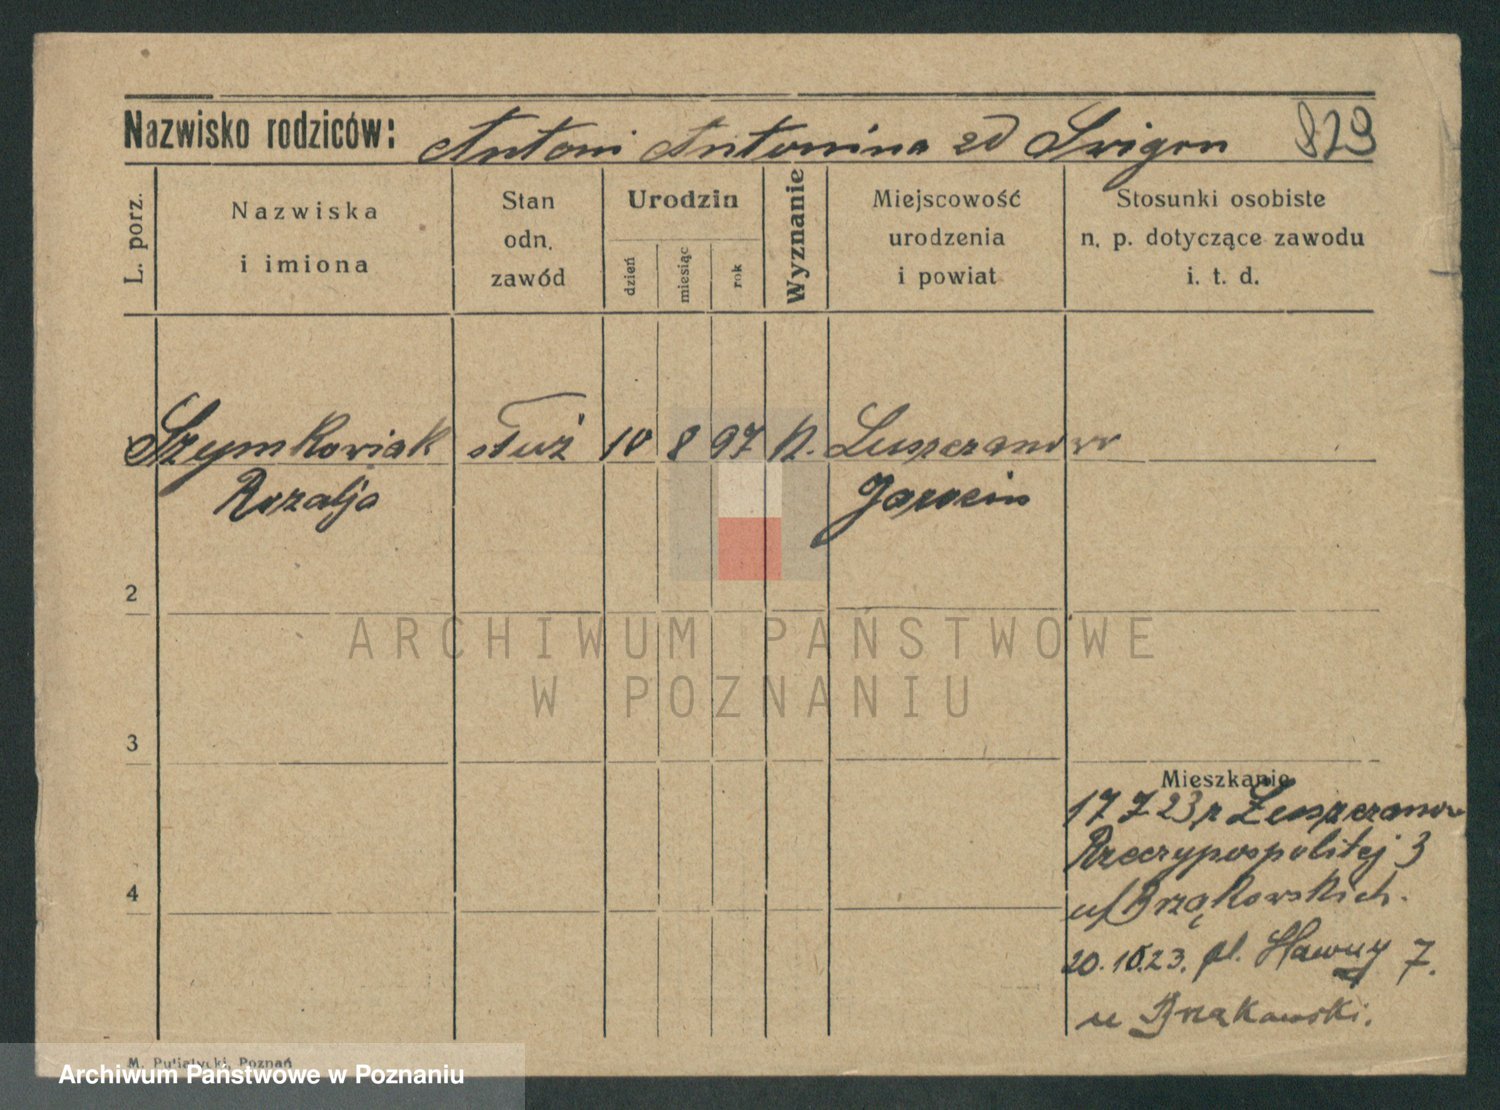 Nazwisko rodziców: Antoni Antonina zd Świgon 829
L. porz.
Nazwiska
i imiona
Stan
odn.
zawód
Urodzin
dzień
miesiąc
rok
Wyznanie
Miejscowość
urodzenia
i powiat
Stosunki osobiste
n. p. dotyczące zawodu
i. t. d.
Szymkowiak służ 10 8 97 k. Luszczanów
Rozalja Jarocin
2
ARCHIWUM PAŃSTWOWE
W POZNANIU
3
Mieszkanie
17 7 23 z Luszczanow
Rzeczypospolitej 3
u/ Brząkowskich.
4
20. 10.23. pl. 7.
u Brząkowski.
M. Putiatycki, Poznań
Archiwum Państwowe w Poznaniu